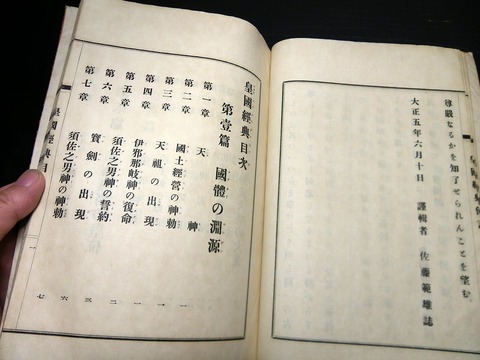 尊嚴なるかを知了せられんことを望む
大正五年六月十日
謹輯者　佐藤範雄誌
皇國經典目次
第壹篇　國體の淵源
第一章　天神　一
第二章　國土經營の神勅　一
第三章　天祖の出現　一
第四章　伊邪那岐神の復命　二
第五章　須佐之男神の誓約　三
第六章　寶劍の出現　六
第七章　須佐之男神の神勅　七
皇國經典目
一